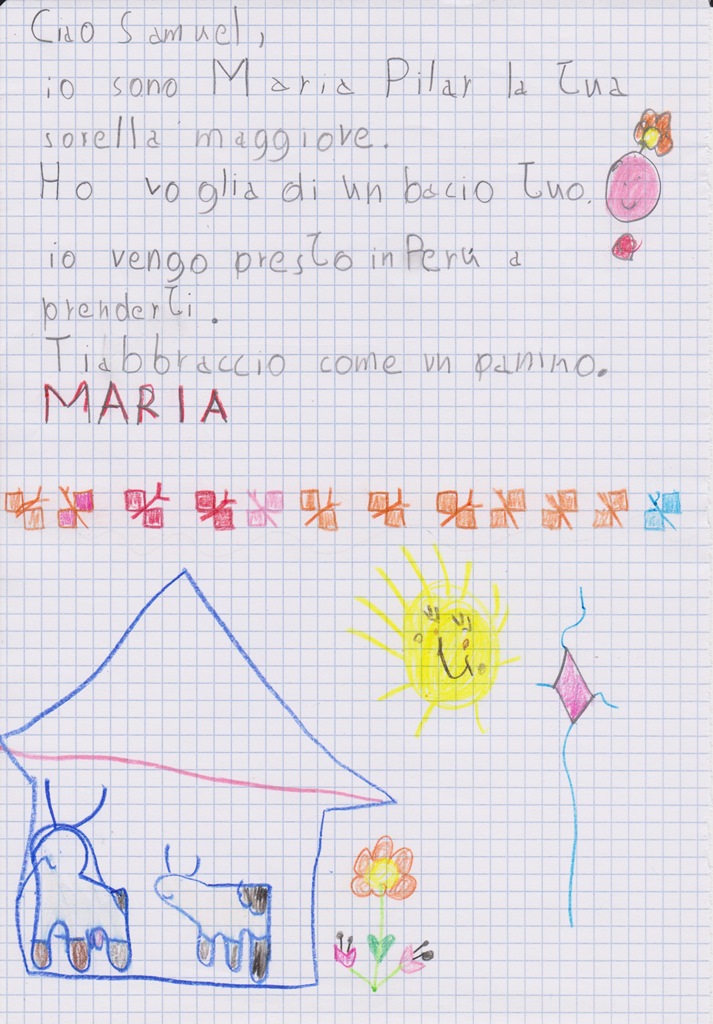 Ciao Samuel,
io sono Maria Pilar la tua
sorella maggiore.
Ho voglia di un bacio tuo.
io vengo presto in Perú a
prenderti.
Ti abbraccio come un panino.
MARIA